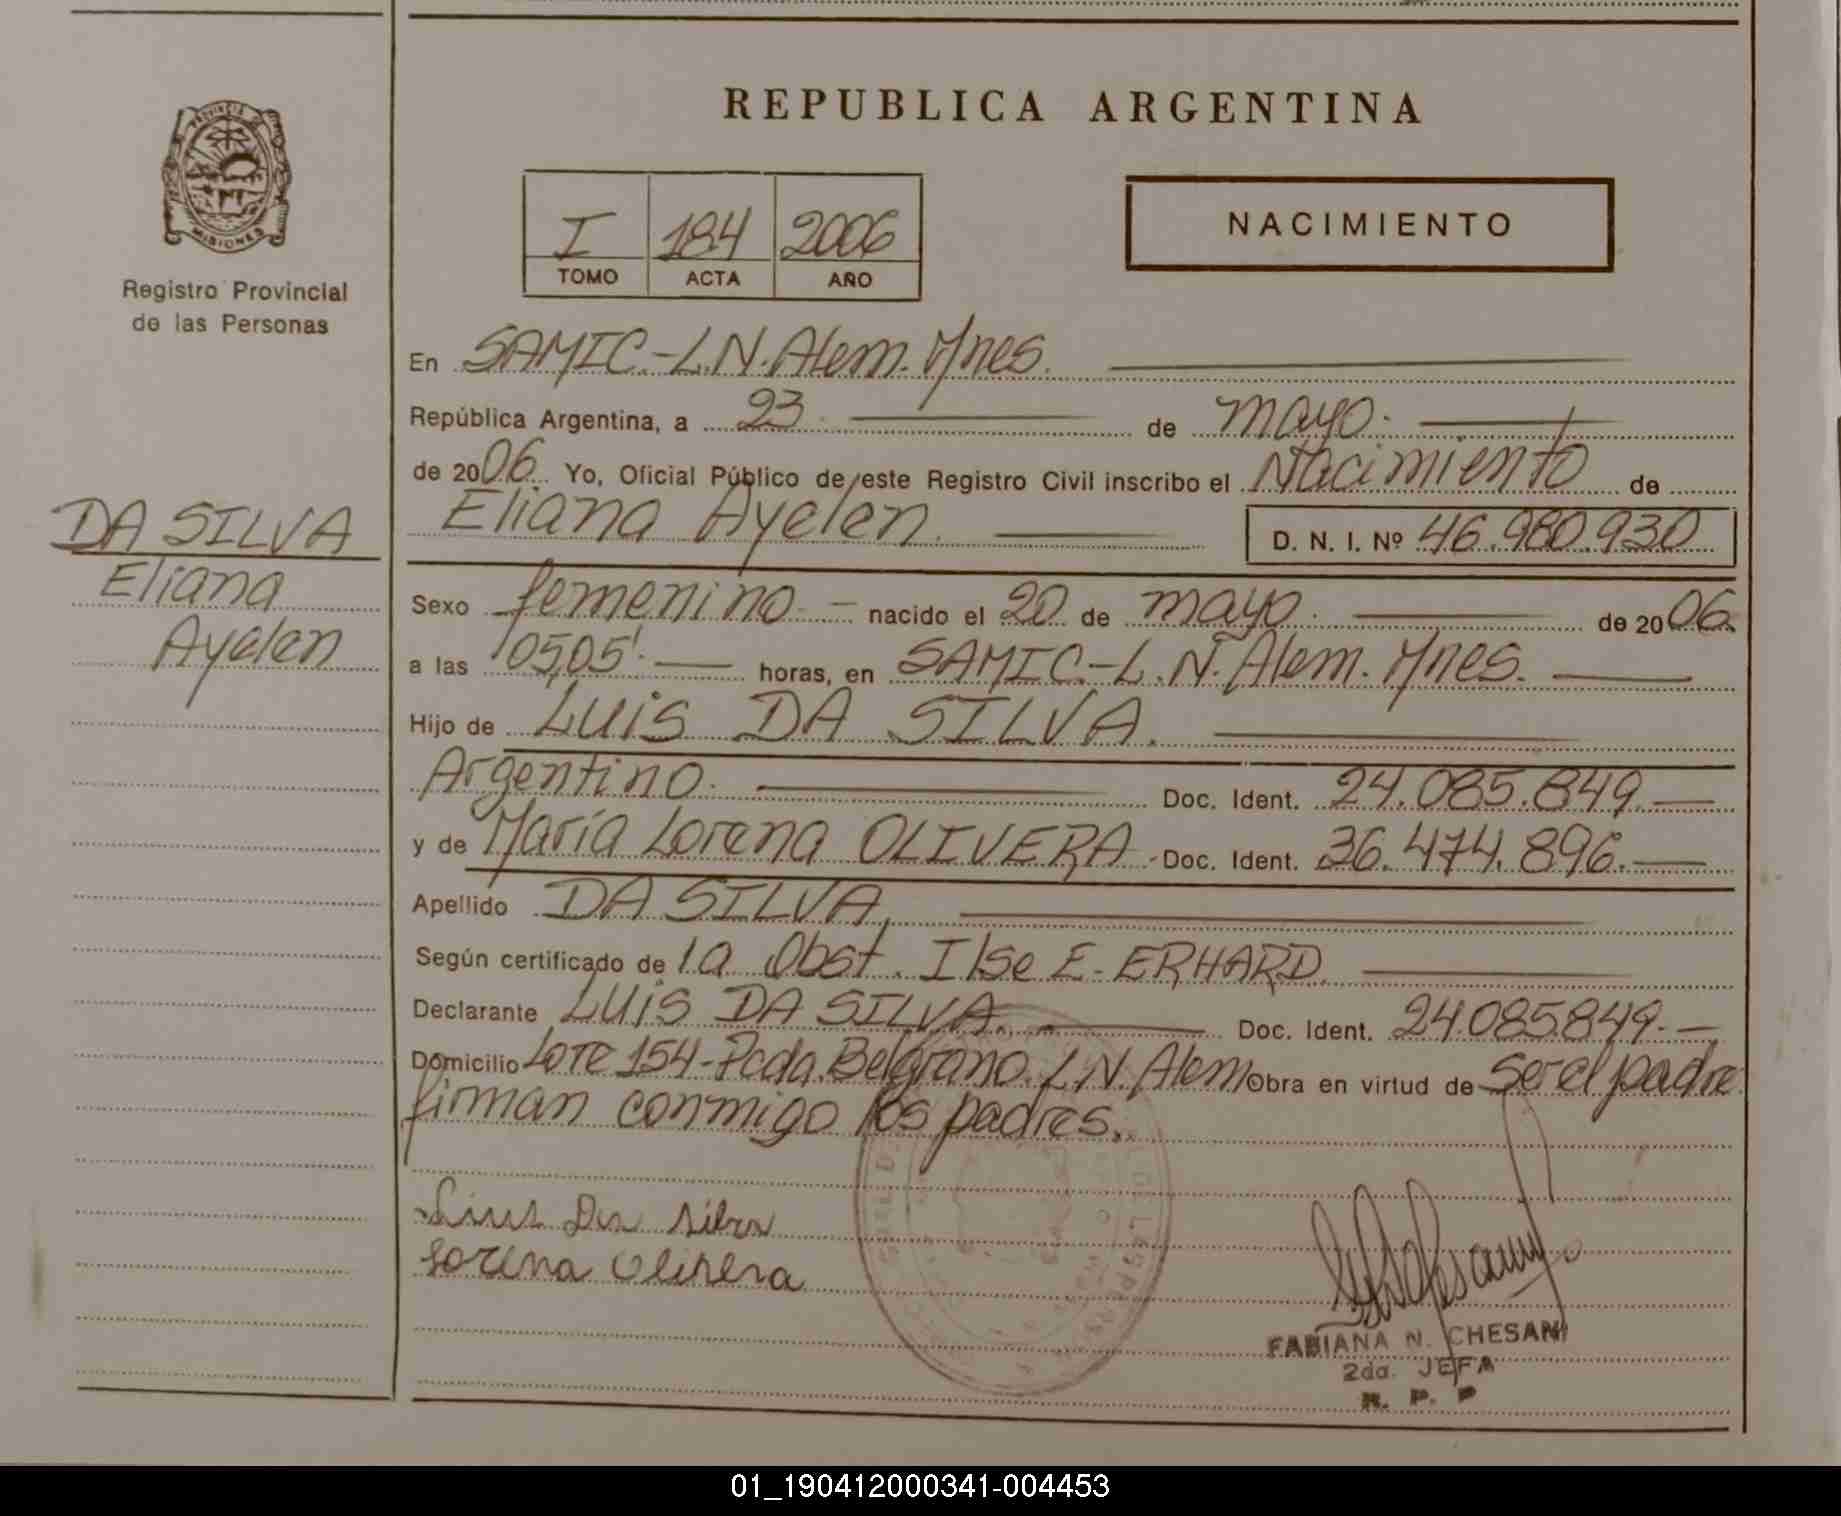 REPUBLICA ARGENTINA
PROVINCIA DE
MISIONES
Registro Provincial
de las Personas
I 184 2006
TOMO ACTA AÑO
NACIMIENTO
En SAMIC.-L.N.Alem.Mnes.
República Argentina, a 23 de mayo.
de 2006. Yo, Oficial Público de este Registro Civil inscribo el Nacimiento de
Eliana Ayelen. D. N. I. Nº 46.980.930
DA SILVA
Eliana
Ayelen
Sexo femenino.- nacido el 20 de mayo. de 2006.
a las 05,05'. horas, en SAMIC.-L.N.Alem. Mnes.
Hijo de Luis DA SILVA.
Argentino. Doc. Ident. 24.085.849.
y de María Lorena OLIVERA Doc. Ident. 36.474.896.
Apellido DA SILVA,
Según certificado de la Obst. Ilse E. ERHARD.
Declarante Luis DA SILVA. Doc. Ident. 24.085.849.
Domicilio Lote 154-Pcda.Belgrano.L.N.Alem Obra en virtud de ser el padre
firman conmigo los padres.
Luis Da Silva
Lorena Olivera
FABIANA N. CHESANI
2da. JEFA
R. P. P
01_190412000341-004453